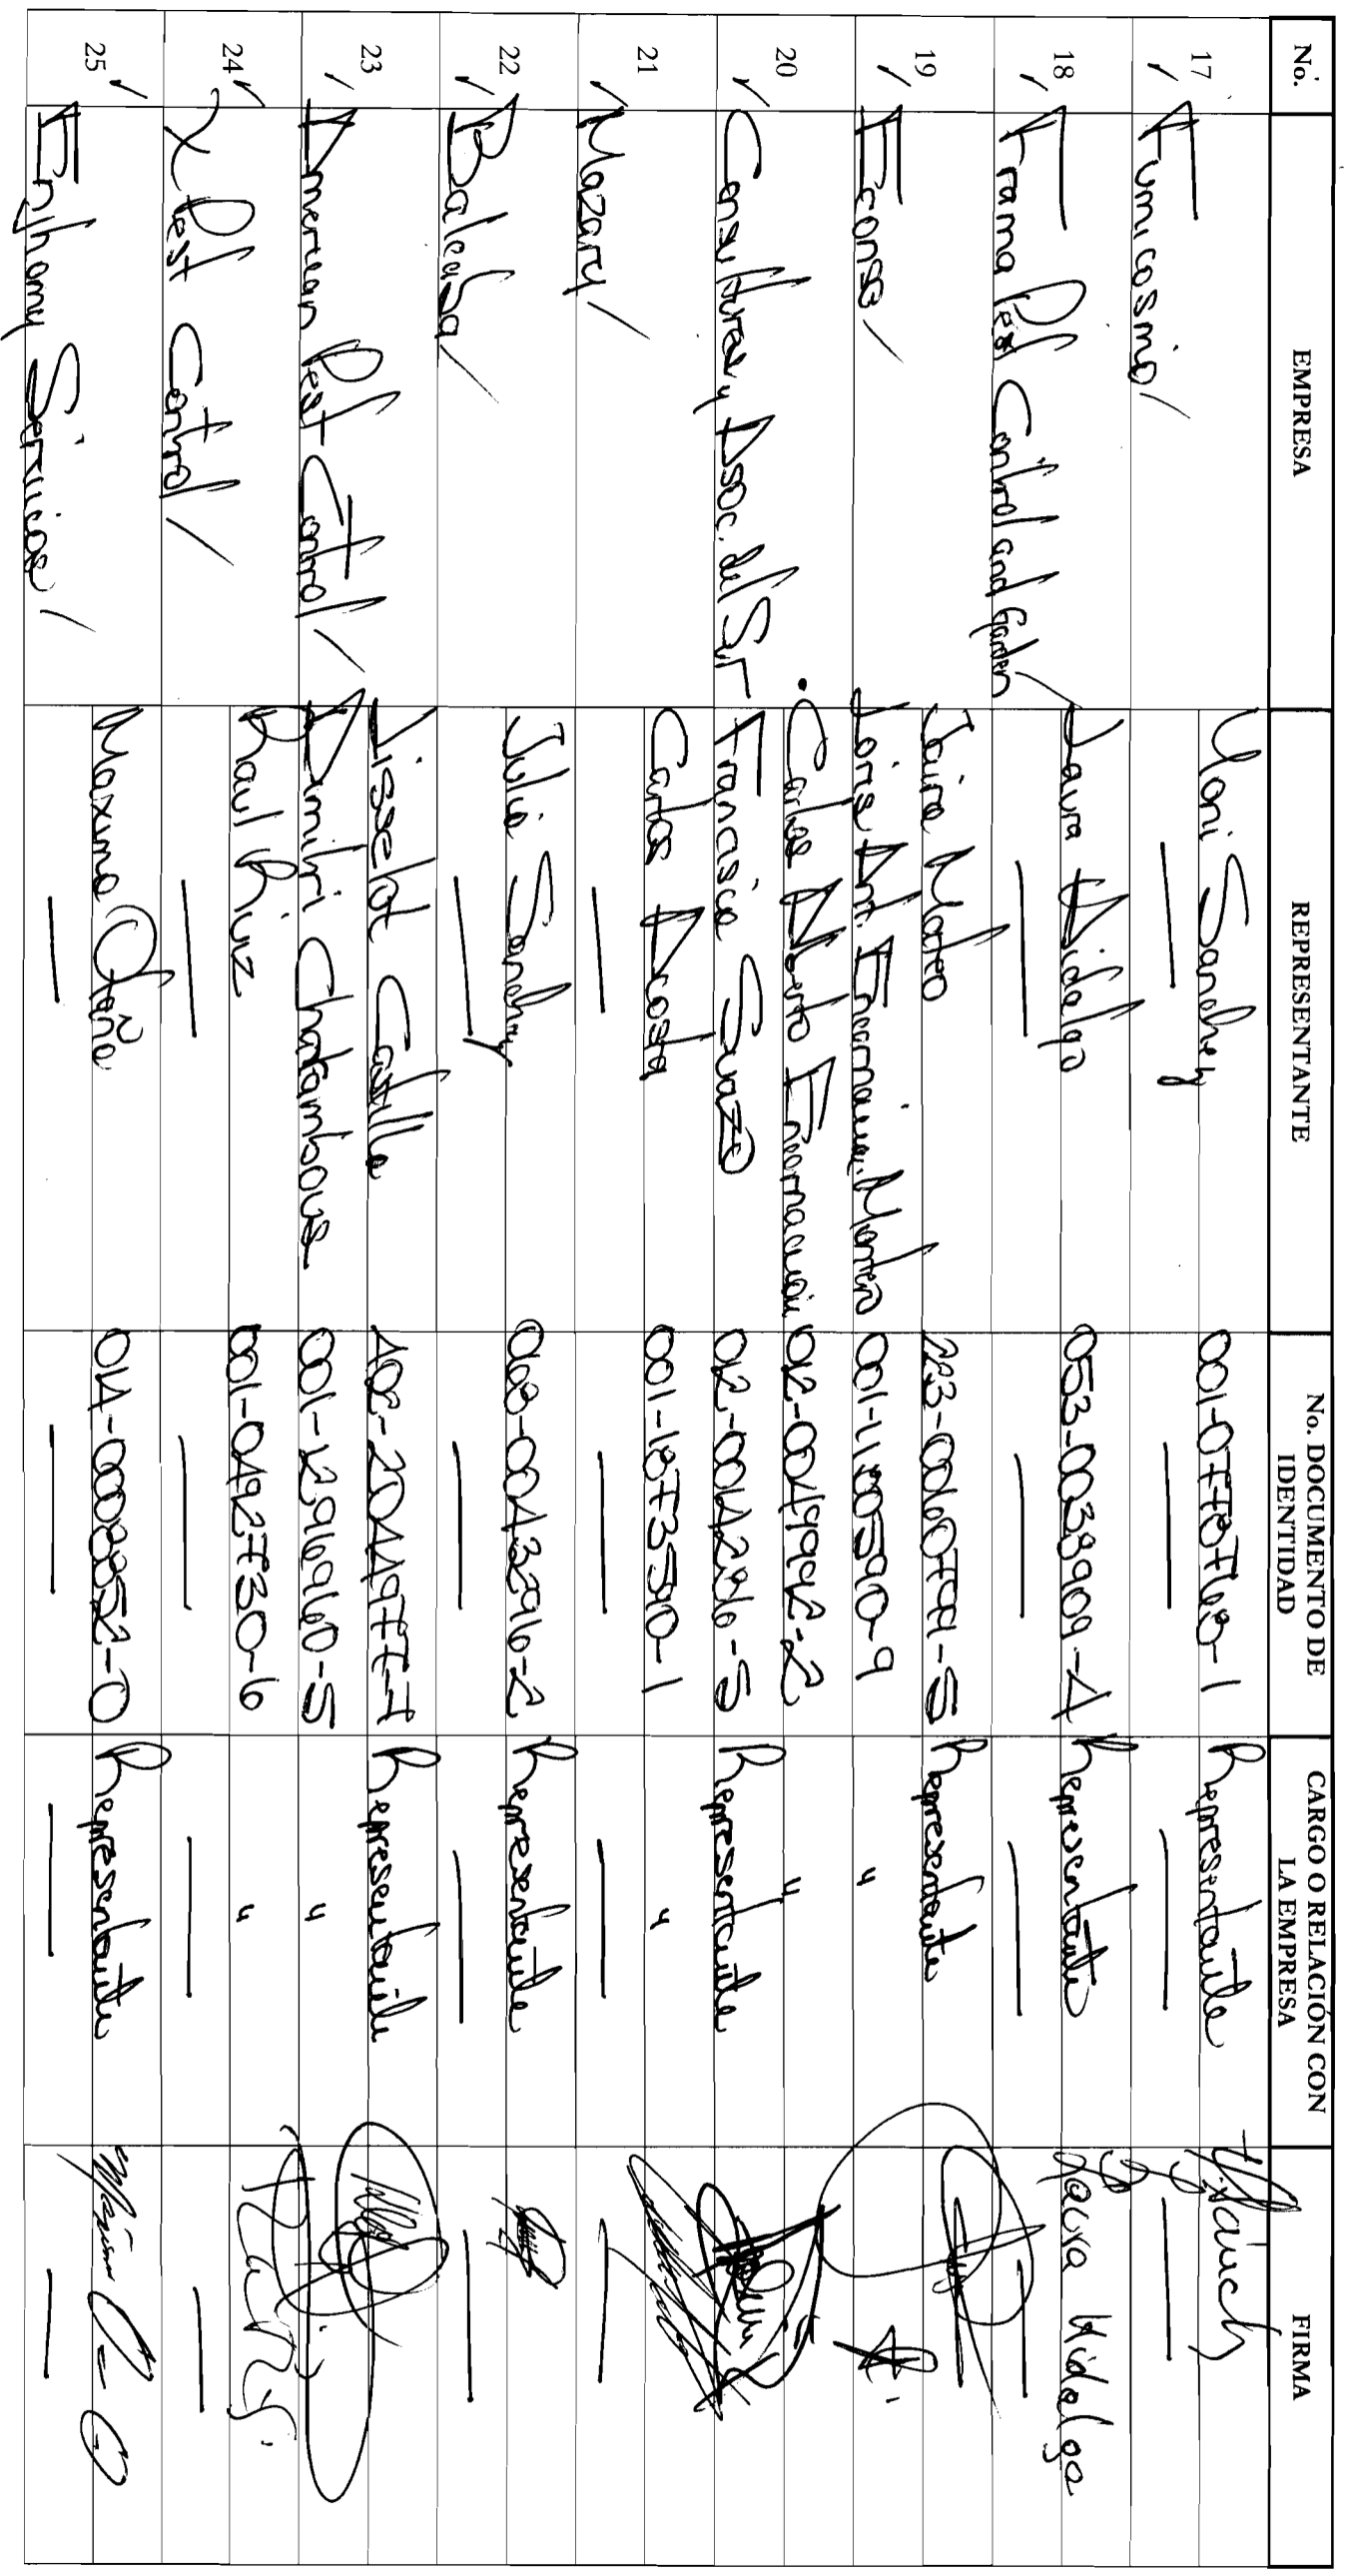 No. EMPRESA REPRESENTANTE No. DOCUMENTO DE IDENTIDAD CARGO O RELACIÓN CON LA EMPRESA FIRMA
17 Fumicosmo Yoni Sanchez 001-0778763-1 Representante
18 Frama Pest Control and Garden Laura Hidalgo 053-0038909-4 Representante Laura Hidalgo
19 Econsa Jaira Mateo 223-0060799-5 Representante
Loris Ant. Encarnación Montero 001-1180590-9 "
20 Consultores y Asoc. del Sur Carlos Alberto Encarnación 012-0049992-2 "
Francisco Suazo 012-0014286-5 Representante
21 Mazary Carlos Acosta 001-1873590-1 "
22 Baleasa Julio Sanchez 068-0043296-2 Representante
23 American Pest Control Lisselot Castillo 402-2044977-7 Representante
Dimitri Chatambous 001-1296960-5 "
24 X Pest Control Raul Ruiz 001-0492730-6 "
25 Enjhomy Servicios Maximo Otaño 014-0008852-0 Representante